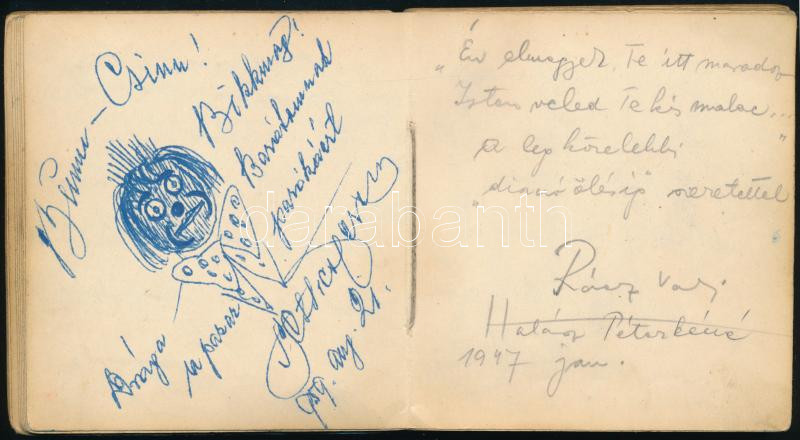 Bimm-Csimm!
Bikkmag!
Barátomnak
Drága
a papas
59. aug. 21.
„Én elmegyek, Te itt maradsz
Isten veled Te kis malac...”
a legközelebbi
„disznóölésig” szeretettel
Rácz Vali
Halász Péterkéné
1947 jan.
darabanth